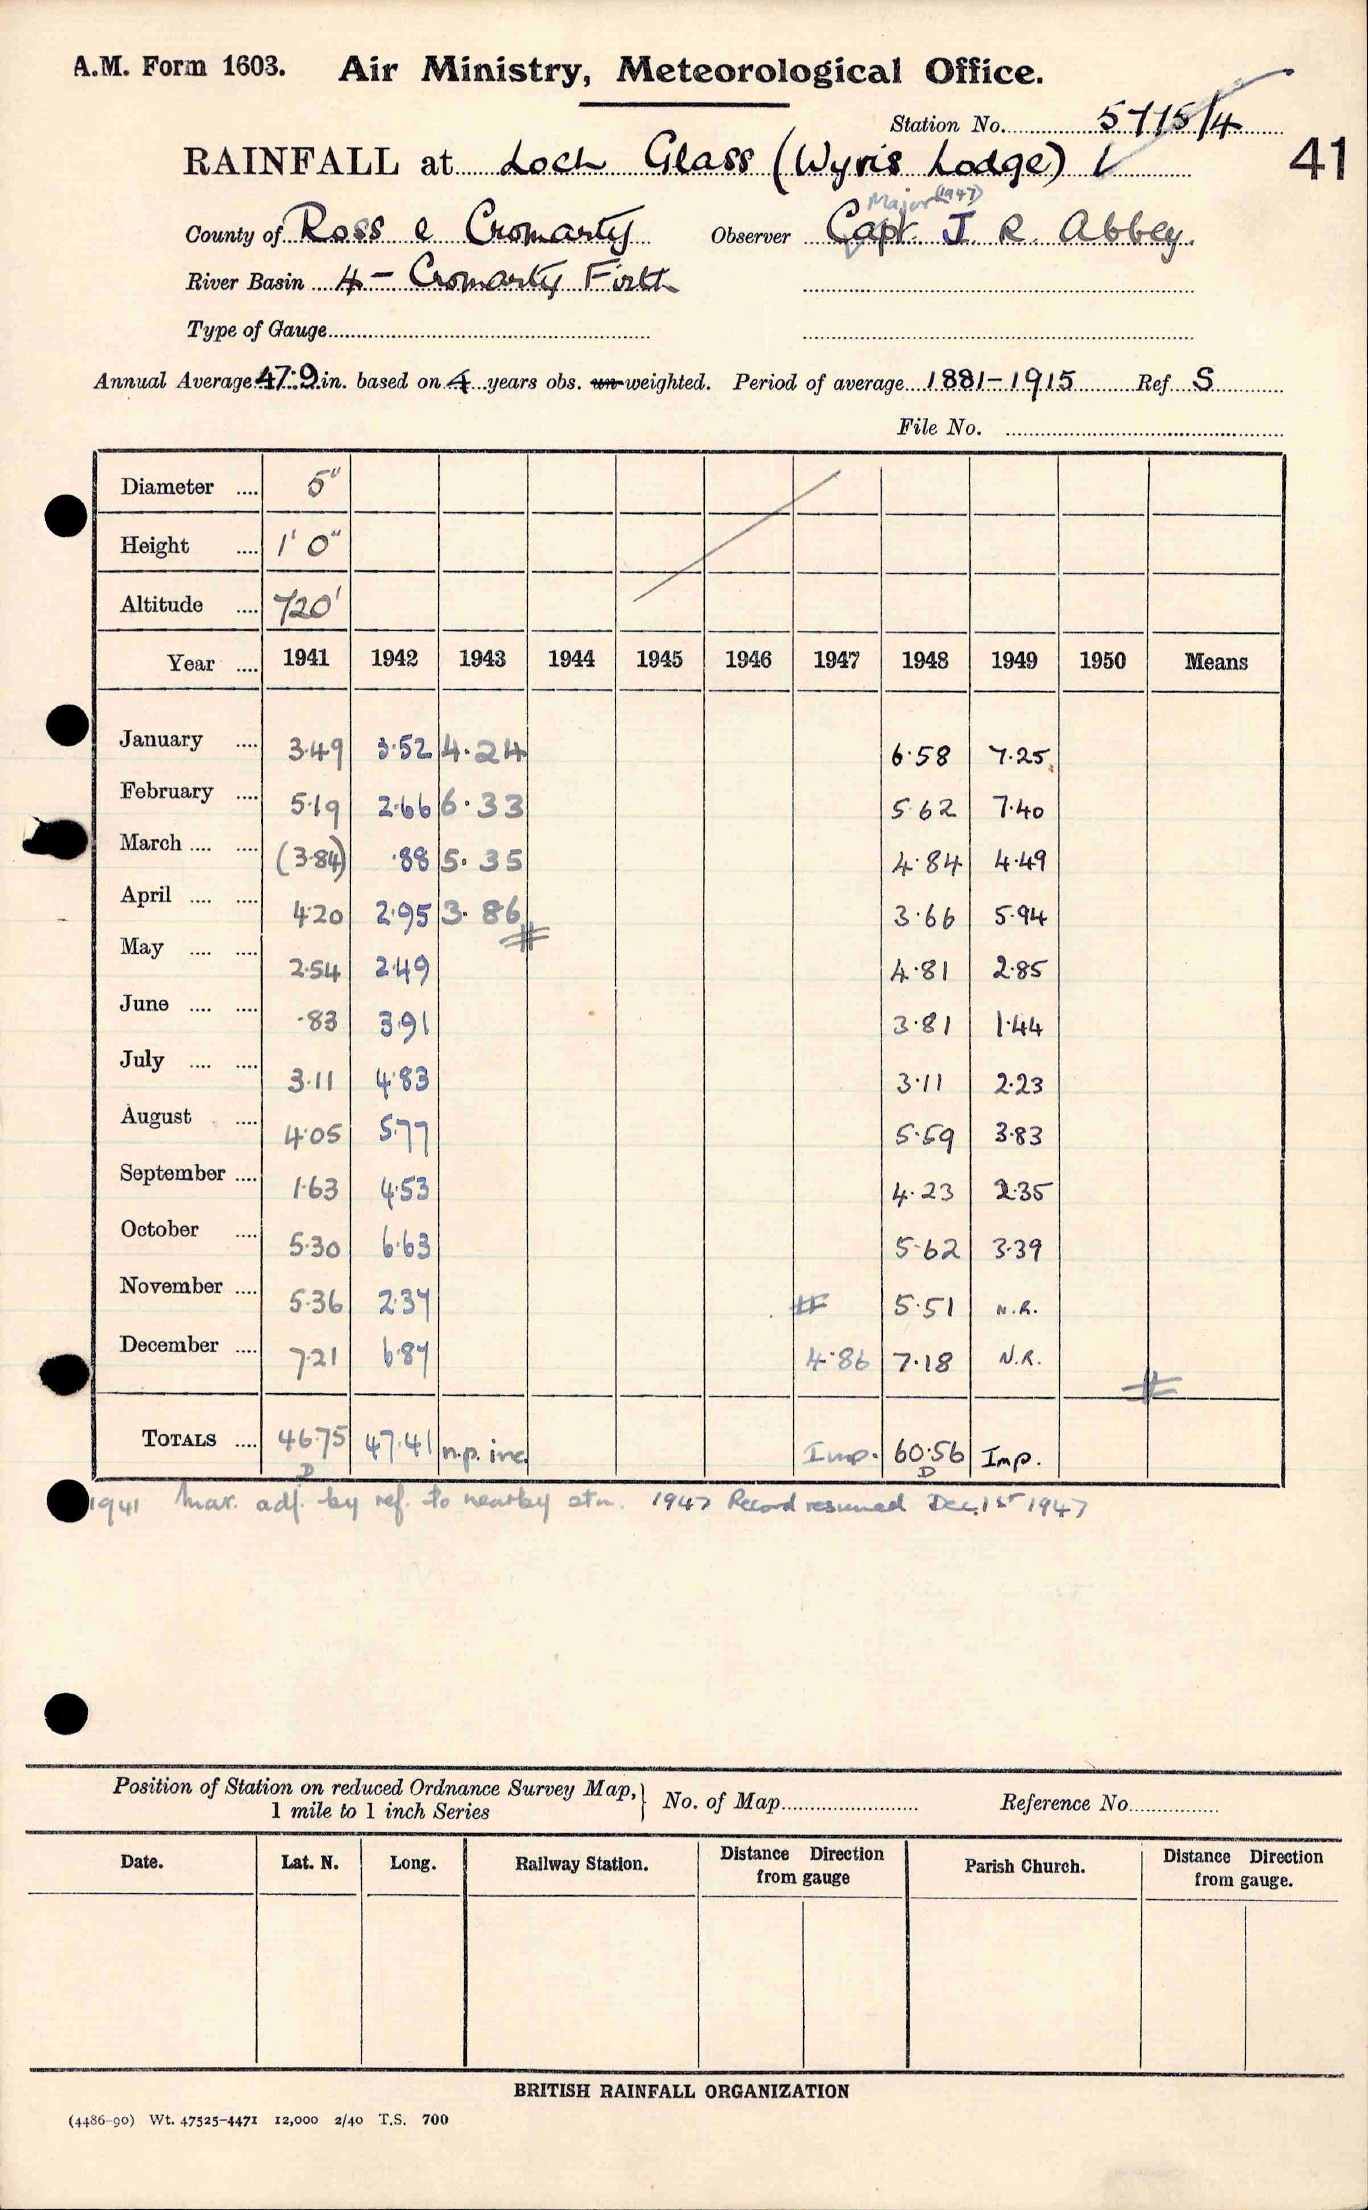 A.M. Form 1603. Air Ministry, Meteorological Office.
Station No. 5775/4
RAINFALL at Loch Glass (Wyvis Lodge) 41
Major (1947)
County of Ross & Cromarty Observer Capt. J. R. Abbey.
River Basin 4 - Cromarty Firth
Type of Gauge
Annual Average 47.9 in. based on 4 years obs. un-weighted. Period of average 1881-1915 Ref. S
File No.
Diameter .... 5"
Height .... 1' 0"
Altitude .... 720'
Year .... 1941 1942 1943 1944 1945 1946 1947 1948 1949 1950 Means
January .... 3.49 3.52 4.24 6.58 7.25
February .... 5.19 2.66 6.33 5.62 7.40
March .... .... (3.84) .88 5.35 4.84 4.49
April .... .... 4.20 2.95 3.86 3.66 5.94
May .... .... 2.54 2.49 4.81 2.85
June .... .... .83 3.91 3.81 1.44
July .... .... 3.11 4.83 3.11 2.23
August .... 4.05 5.77 5.59 3.83
September .... 1.63 4.53 4.23 2.35
October .... 5.30 6.63 5.62 3.39
November .... 5.36 2.37 5.51 N.R.
December .... 7.21 6.87 4.86 7.18 N.R.
TOTALS .... 46.75 47.41 n.p. inc. Imp. 60.56 Imp.
D D
1941 Mar. adj. by ref. to nearby stn. 1947 Record resumed Dec. 1st 1947
Position of Station on reduced Ordnance Survey Map, } No. of Map Reference No.
1 mile to 1 inch Series
Date. Lat. N. Long. Railway Station. Distance Direction from gauge Parish Church. Distance Direction from gauge.
BRITISH RAINFALL ORGANIZATION
(4486-90) Wt. 47525-4471 12,000 2/40 T.S. 700